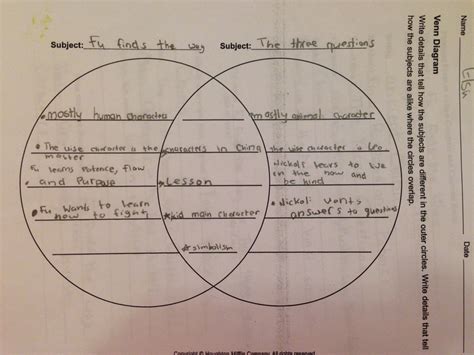 Name
Date
Venn Diagram
Write details that tell how the subjects are different in the outer circles. Write details that tell
how the subjects are alike where the circles overlap.
Subject: Fu finds the way
Subject: The three questions
mostly human characters
mostly animal character
The wise character is the master
characters in China
the wise character is Leo
Fu learns patence, flow
and Purpose
Lesson
Nickoli lears to live
in the now and
be kind
Fu wants to learn
how to fight
kid main character
Nickoli vants
answers to questions
simbolism
Copyright © Houghton Mifflin Company. All rights reserved.